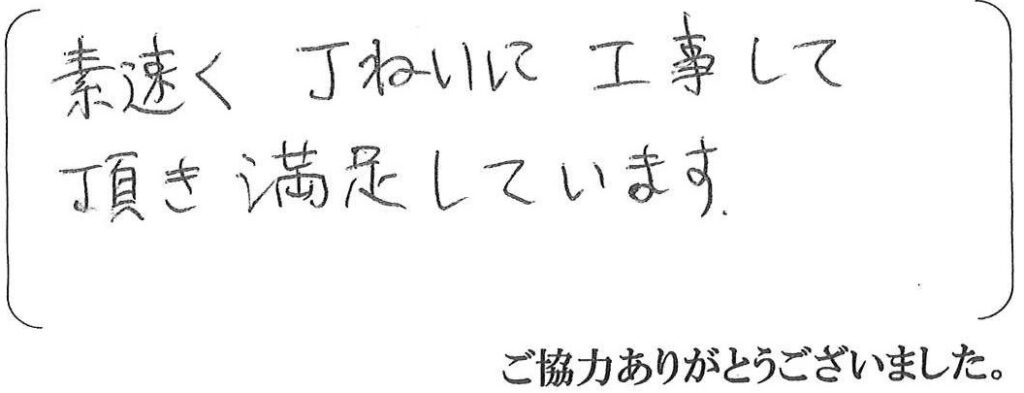 素速く 丁ねいに 工事して
頂き 満足しています.
ご協力ありがとうございました。